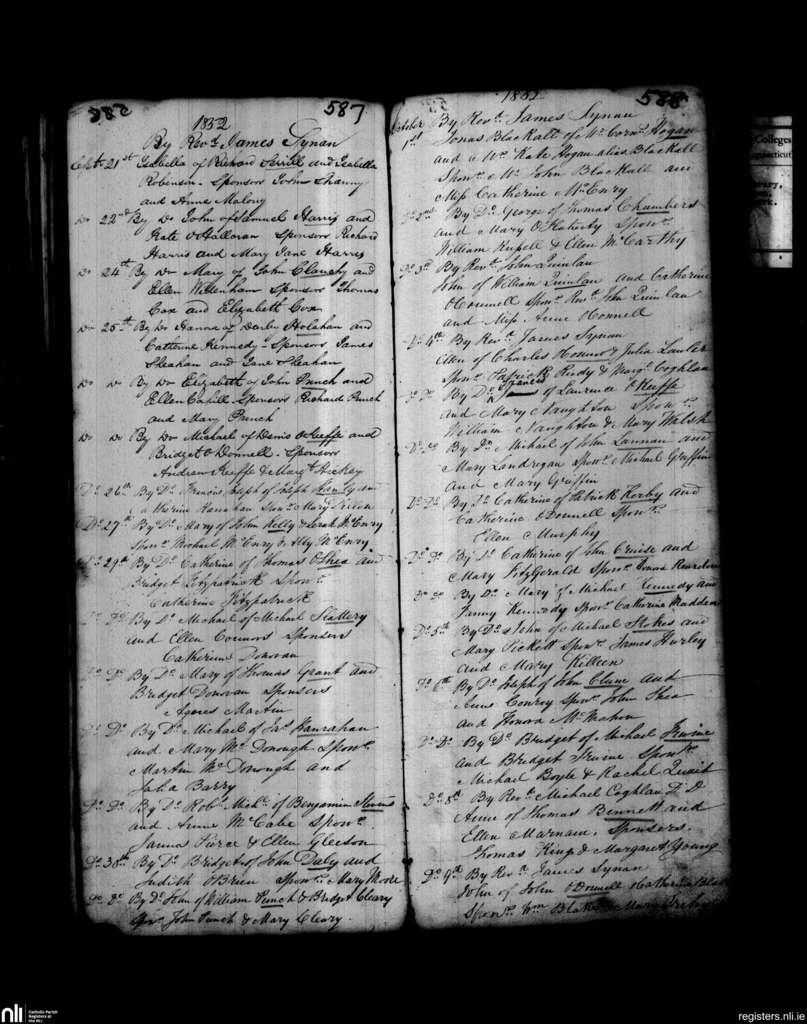 586
587
1852
By Revd. James Synan
Sept. 21st Isabella of Richard Serrill and Isabella
Robinson. Sponsors John Shanny
and Anne Malony
Do 22nd By Do John of Samuel Harris and
Kate O'Halloran Sponsors Richard
Harris and Mary Jane Harris
Do 24th By Do Mary of John Clanchy and
Ellen Wiltenham Sponsors Thomas
Cox and Elizabeth Cox
Do 25th By Do Hanora of Darby Holahan and
Catherine Kennedy Sponsors James
Sheahan and Jane Sheahan
Do Do By Do Elizabeth of John Punch and
Ellen Cahill Sponsors Richard Punch
and Mary Punch
Do Do By Do Michael of Denis O'Keeffe and
Bridget O'Donnell. Sponsors
Andrew Keeffe & Margt. Hickey
Do 26th By Do Francis Joseph of Joseph and
Catherine Hanrahan Sponr. Mary
Do 27th By Do Mary of John Kelly & Sarah McEnry
Sponr. Michael McEnry & Ally McEnry.
Do 29th By Do Catherine of Thomas O'Shea and
Bridget Fitzpatrick Sponr.
Catherine Fitzpatrick
Do Do By Do Michael of Michael Slattery
and Ellen Connors Sponsers
Catherine Donovan
Do Do By Do Mary of Thomas Grant and
Bridget Donovan Sponsers
Agnes Martin
Do Do By Do Michael of Jas. Hanrahan
and Mary McDonough Sponr.
Martin McDonough and
Barry
Do Do By Do Robt. Michl. of Benjamin
and Anne McCabe Sponr.
James Pierce & Ellen Gleeson
Do 30th By Do Bridget of John Daly and
Judith O'Brien Sponr. Mary Moore
Do Do By Do John of William Punch & Bridget Cleary
Sponr. John Punch & Mary Cleary.
1852
588
October By Revd. James Synan
1st Jonas Blackall of Mr. Corns. Hogan
and Mrs. Kate Hogan alias Blackall
Sponr. Mr. John Blackall and
Miss Catherine McEnry
Do 2nd By Do George of Thomas Chambers
and Mary O'Flaherty Sponr.
William Russell & Ellen McCarthy
Do 3rd By Revd. John Quinlan
John of William Quinlan and Catherine
O'Connell Sponr. Revd. John Quinlan
and Miss Anne O'Connell
Do 4th By Revd. James Synan
Ellen of Charles O'Connor & Julia Lawler
Sponr. Patrick Reidy & Margt. Coghlan
Do Do By Do Francis of Laurence O'Keeffe
and Mary Naughton Sponr.
William Naughton & Mary Walsh
Do Do By Do Michael of John Lannan and
Mary Landregan Sponr. Michael Griffin
and Mary Griffin
Do Do By Do Catherine of Patrick Kerby and
Catherine O'Donnell Sponr.
Ellen Murphy
Do Do By Do Catherine of John Cruise and
Mary FitzGerald Sponr.
Do Do By Do Mary of Michael Kennedy and
Fanny Kennedy Sponr. Catherine Madden
Do 5th By Do John of Michael Stokes and
Mary Pickett Sponr. James Hurley
and Mary Killeen
Do 6th By Do Joseph of John Clune and
Anne Conroy Sponr. John Shea
and Honora McMahon
Do Do By Do Bridget of Michael Irvine
and Bridget Irvine Sponr.
Michael Boyle & Rachel Quail
Do 8th By Revd. Michael Coghlan
Anne of Thomas Bennett and
Ellen Marnane. Sponsers.
Thomas King & Margaret Young
Do 9th By Revd. James Synan
John of John O'Donnell & Catherine
Sponr. Wm. Blake
Colleges
nnecticut
rary,
nli
Catholic Parish
Registers at
the NLI
registers.nli.ie